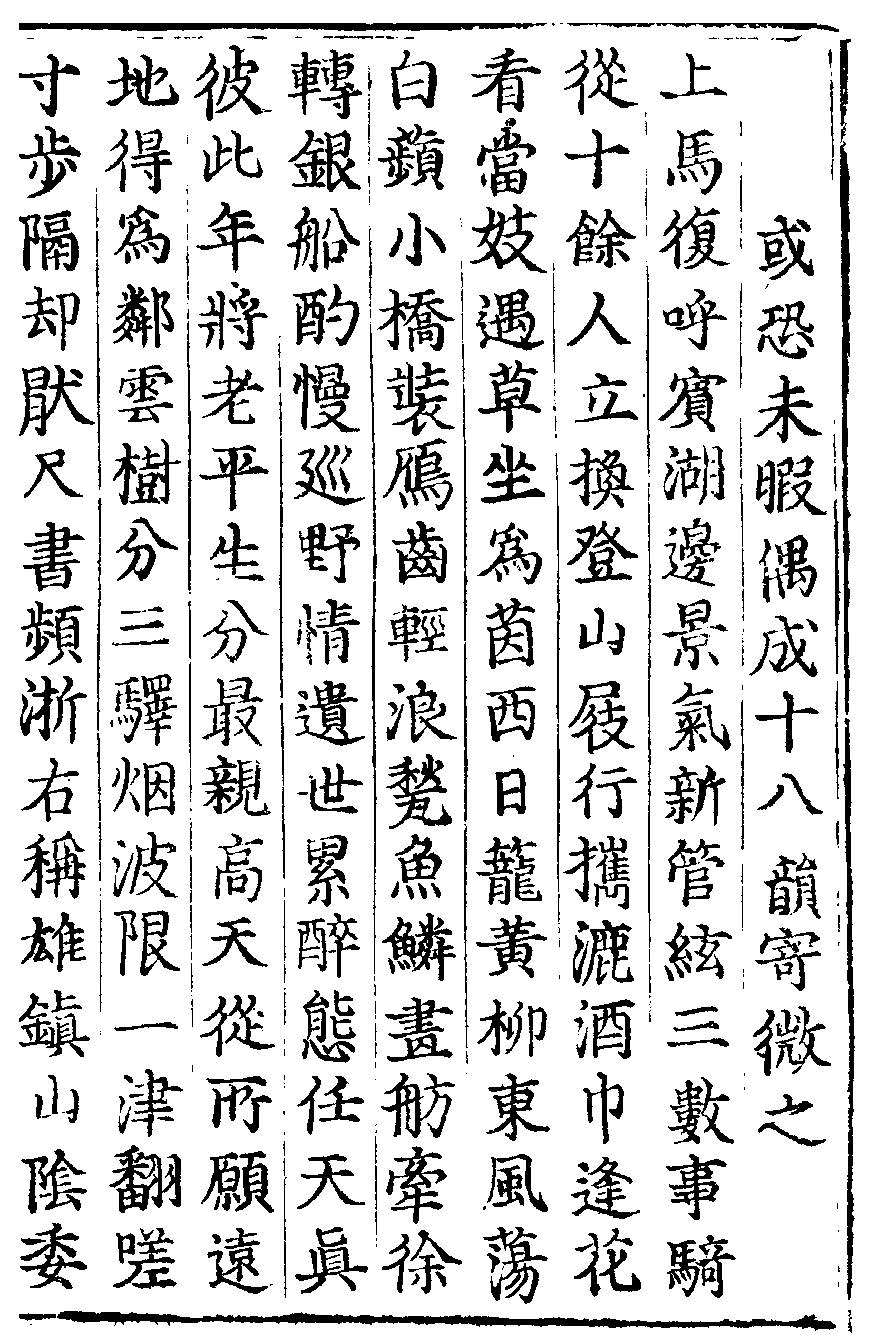 或恐未暇偶成十八韻寄微之
上馬復呼賓湖邊景氣新管絃三數事騎
從十餘人立換登山屐行攜漉酒巾逢花
看當妓遇草坐爲茵西日籠黃柳東風蕩
白蘋小橋裝鴈齒輕浪甃魚鱗畫舫牽徐
轉銀船酌慢廵野情遺世累醉態任天眞
彼此年將老平生分最親高天從所願遠
地得爲鄰雲樹分三驛烟波限一津翻嗟
寸步隔却猒尺書頻浙右稱雄鎭山隂委